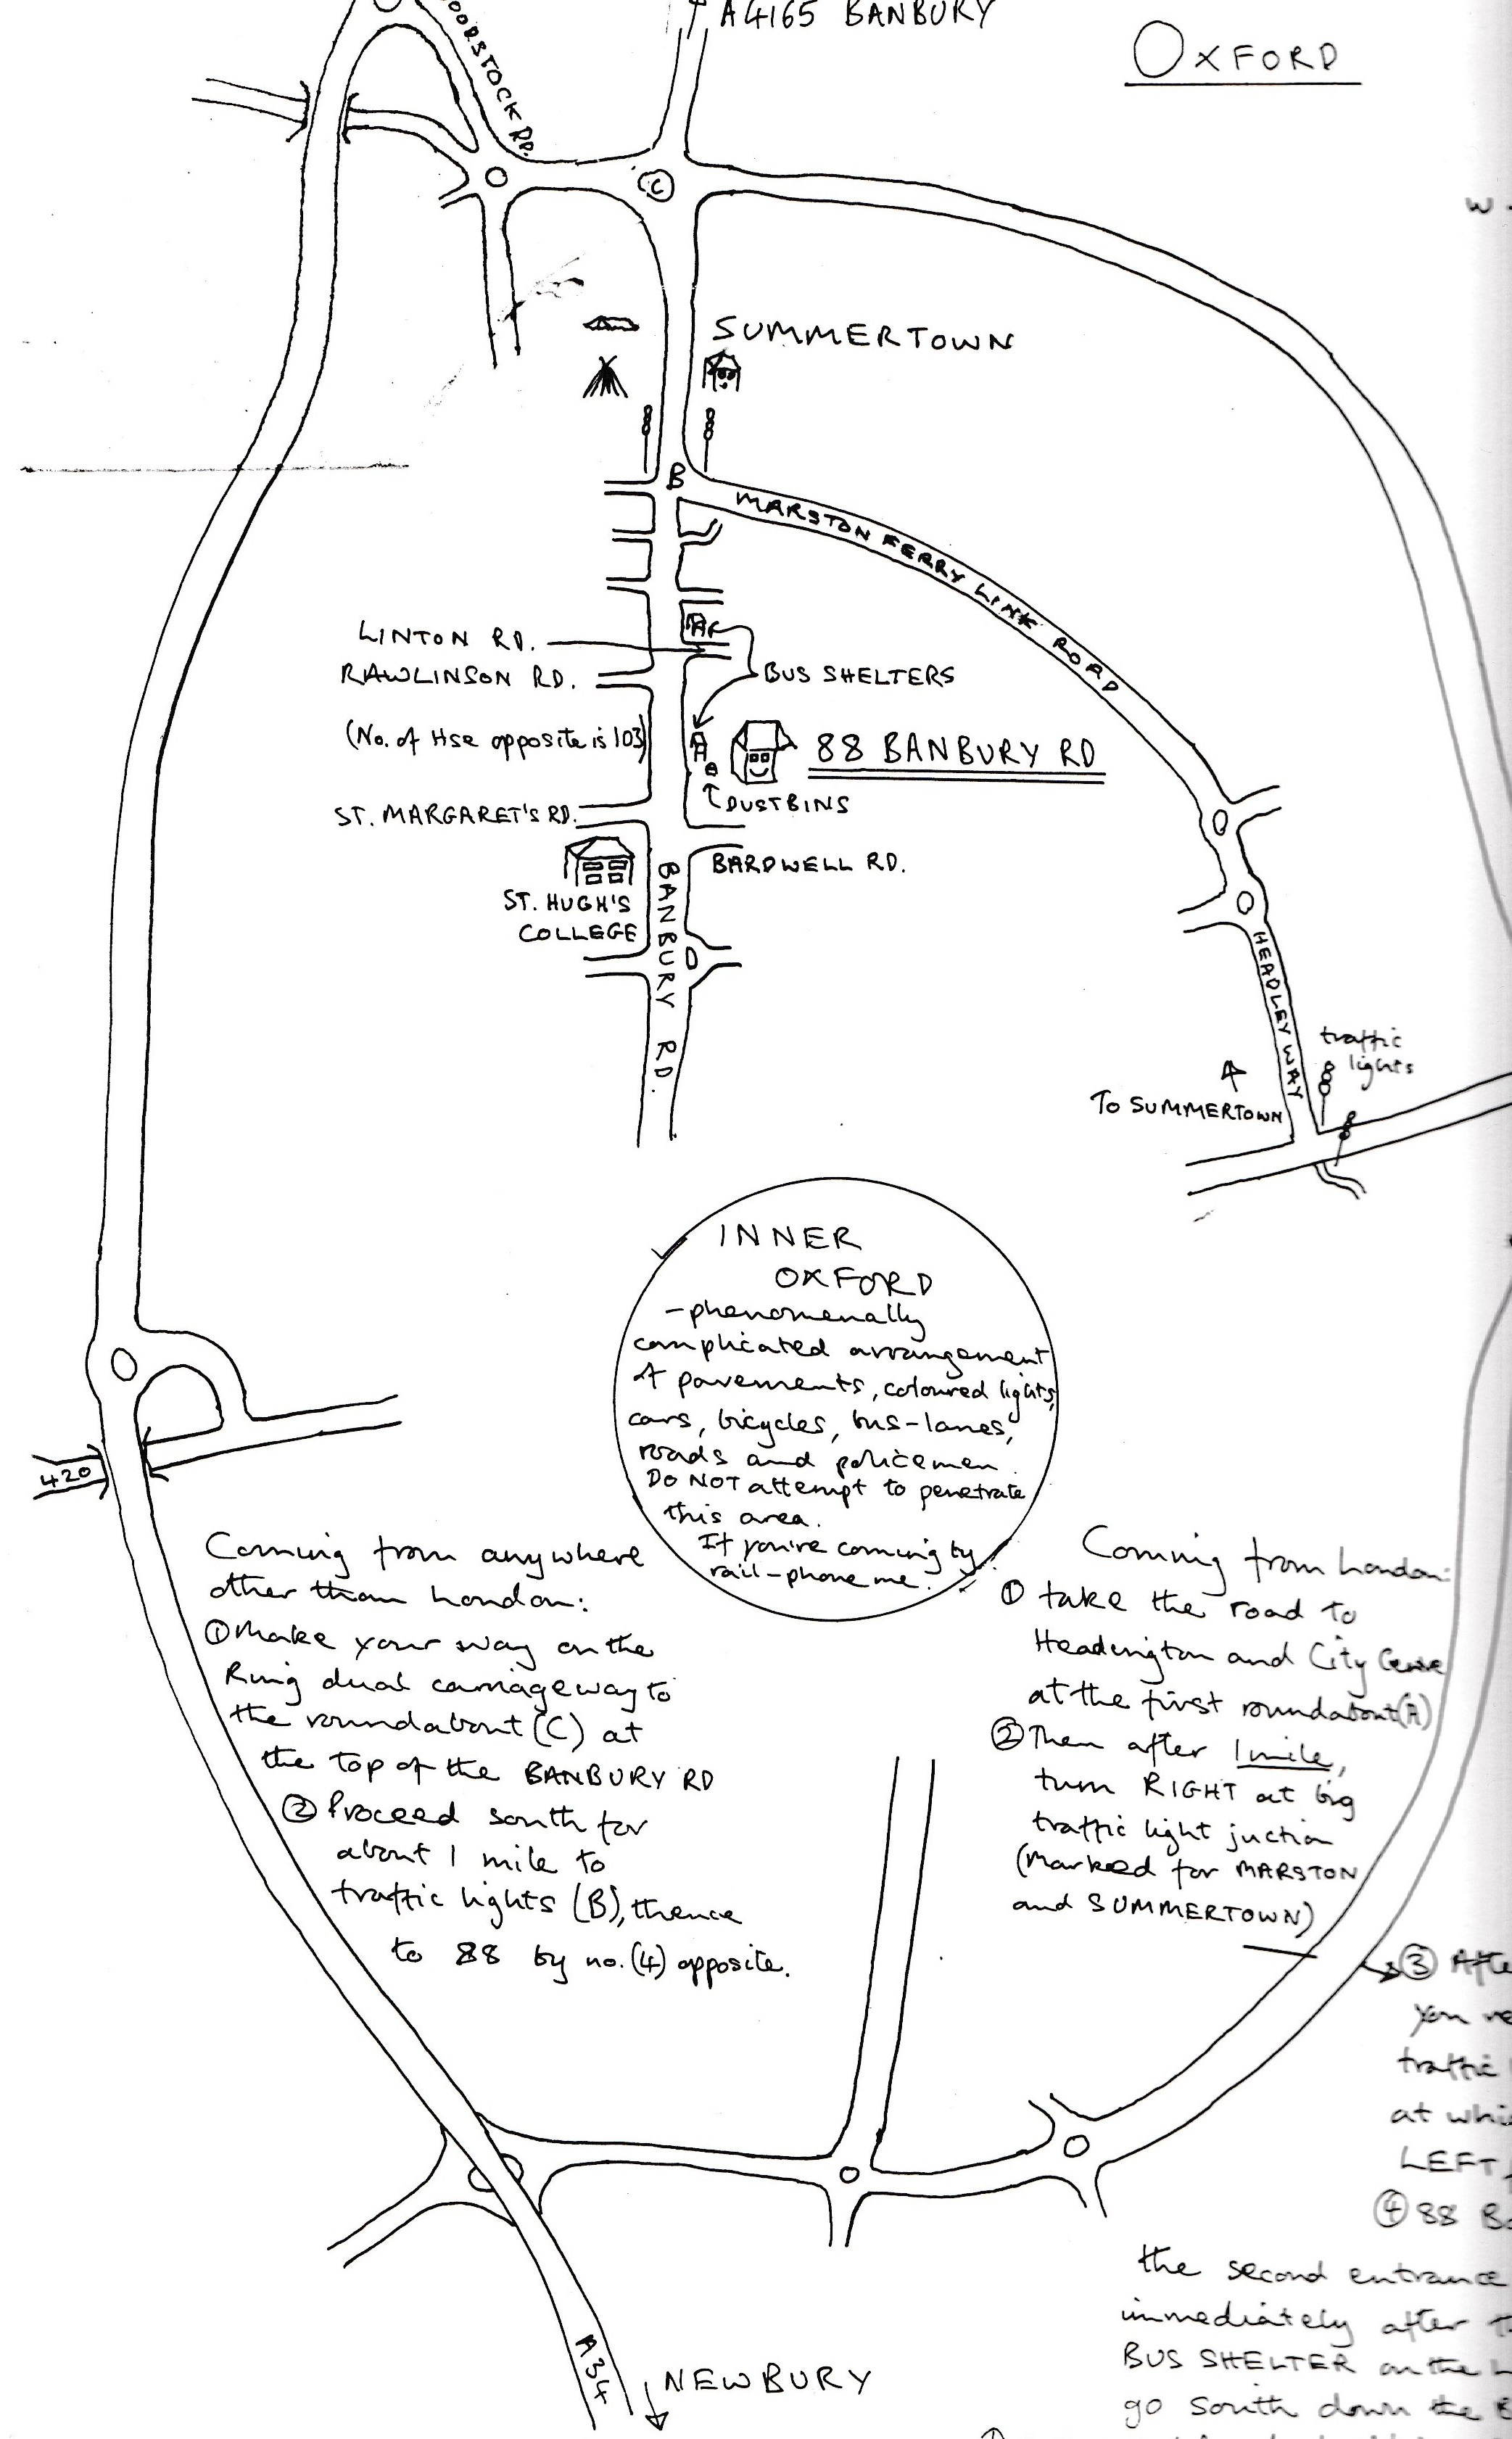 A4165 BANBURY
OXFORD
OORSTOCK RD.
C
W
SUMMERTOWN
B
MARSTON FERRY LINK ROAD
LINTON RD.
RAWLINSON RD.
BUS SHELTERS
(No. of Hse opposite is 103)
88 BANBURY RD
DUSTBINS
ST. MARGARET'S RD.
BARDWELL RD.
ST. HUGH'S
COLLEGE
BANBURY RD.
D
HEADLEY WAY
traffic
lights
TO SUMMERTOWN
INNER
OXFORD
-phenomenally
complicated arrangement
of pavements, coloured lights,
cars, bicycles, bus-lanes,
roads and policemen.
DO NOT attempt to penetrate
this area.
If you're coming by
rail-phone me.
420
Coming from anywhere
other than London:
① Make your way on the
Ring dual carriageway to
the roundabout (C) at
the top of the BANBURY RD
② Proceed south for
about 1 mile to
traffic lights (B), thence
to 88 by no. (4) opposite.
Coming from London:
① take the road to
Headington and City Centre
at the first roundabout (A)
② Then after 1 mile,
turn RIGHT at big
traffic light juction
(Marked for MARSTON
and SUMMERTOWN)
③ Afte
you re
traffic
at whi
LEFT,
④ 88 Ba
the second entrance
immediately after t
BUS SHELTER on the L
go south down the B
A34
NEWBURY